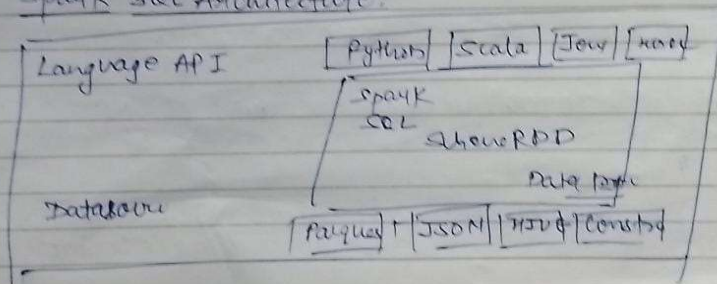 Spark SQL Architecture.
Language API | Python | Scala | Java |
Spark
SQL
SchemaRDD
Data
Datasource
| Parquet | JSON | HIVE |